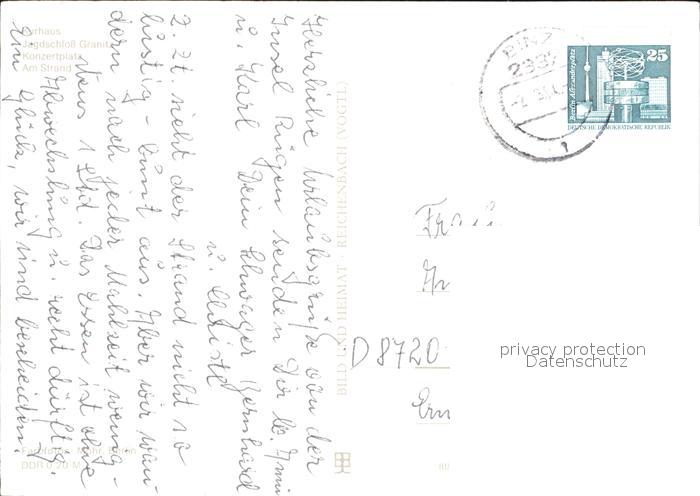 Kurhaus
Jagdschloß Granitz
Konzertplatz
Am Strand
Herzliche Urlaubsgrüße von der
Insel Rügen senden Dir lb. Immi
u. Karl Dein Schwager Bernhard
u. Christl
Z. Zt. nicht der Strand nicht so
lustig - bunt aus. Aber wir wan-
dern nach jeder Mahlzeit wenig-
stens 1 Std. Das Essen ist ohne
Abwechslung u. recht dürftig.
Ein Glück, wir sind bescheiden.
Farbfotos: Mohr, Berlin
DDR 0,20 M
BILD UND HEIMAT · REICHENBACH (VOGTL)
BINZ
2337
25
Berlin, Alexanderplatz
DEUTSCHE DEMOKRATISCHE REPUBLIK
D 8720
privacy protection
Datenschutz